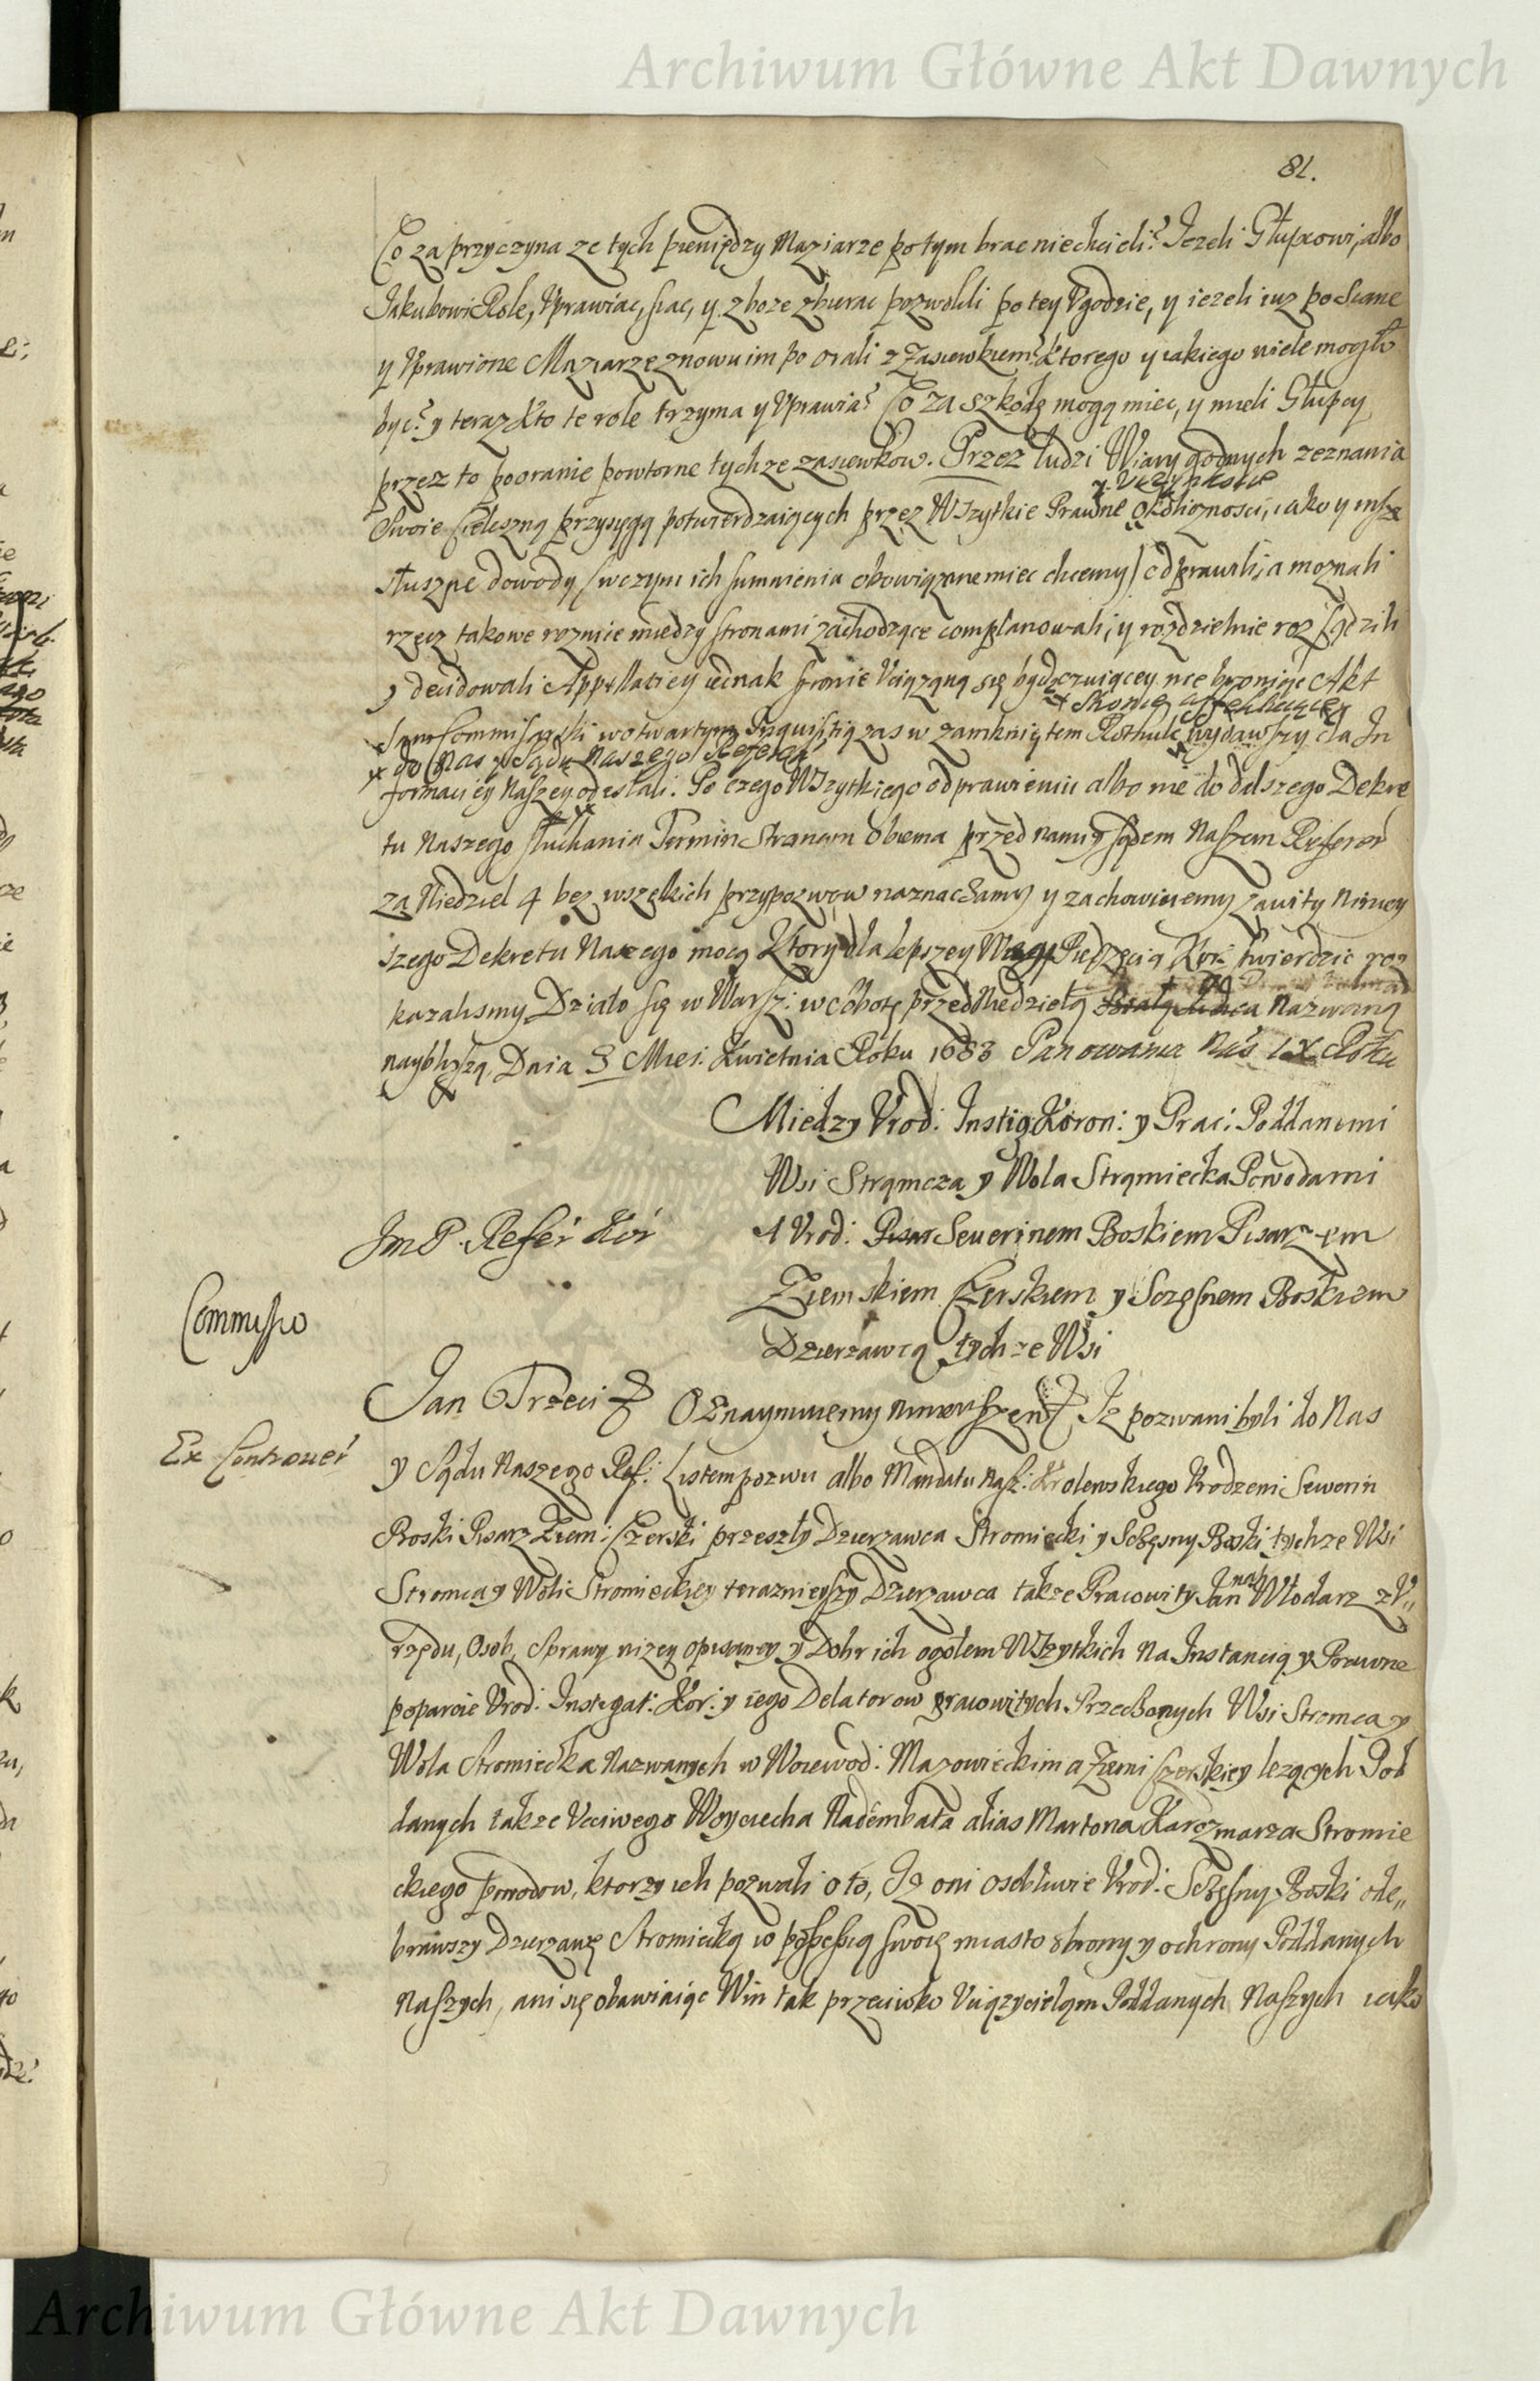 Archiwum Główne Akt Dawnych
81.
Co za przyczyna ze tych pieniędzy Maziarze potym brac niechcieli? Jezeli Głupcowi, albo
Jakubowi Role, Vprawiac, siac, y zboze zbierac pozwolili po tey Vgodzie, y iezeli iuz posiane
y Vprawione Maziarze znowu im po orali z zasiewkiem? Ktorego y iakiego wiele mogło
byc? y teraz kto te role trzyma y Vprawia? Co za szkodę mogą miec, y mieli Głupcy
przez to pooranie powtorne tychze zasiewkow. Przez ludzi Wiary godnych zeznania
y Vczynkowe
Swoie cieleszną przysięgą potwierdzaiących przez Wszytkie Prawne Okolicznosci, iako y insze
słuszne dowody (w czym ich sumnienia obowiązane miec chcemy) odprawili, a moznali
rzecz takowe roznice między stronami zachodzące complanowali, y rozdzielnie rozsądzili
y decidowali Appellatiey iednak stronie Vciązoną się bydz czuiącey nie broniąc Akt
stronie affektuiącey
sam Commissarski w otwartym Inquisitią zas w zamkniętem Rothule wydawszy dla In
do Nas y Sądu Naszego Referen
formaciey Naszey odesłali. Po czego Wszytkiego odprawieniu albo nie do dalszego Dekre
tu Naszego słuchania Termin Stronom obiema przed nami y sądem Naszem Referen
za Niedziel 4 bez wszelkich przypozwow naznaczamy y zachowuiemy zawity niniey
szego Dekretu Naszego mocą Ktory dla lepszey Wagi Pieczęcią Kor: twierdzic roz
kazalismy Działo się w Warsz: w Sobotę przed Niedzielą Nazwaną
naybliszą Dnia 3 Mies: Kwietnia Roku 1683 Panowania Nas IX Roku
Między Vrod: Instig: Koron: y Prac: Poddanemi
Wsi Strąmcza y Wola Strąmiecka Powodami
Im P. Refer Kor
A Vrod: Seuerinem Boskiem Pisarzem
Ziemskiem Czerskiem y Sczęsnem Boskiem
Commissio
Dzierzawcą tychze Wsi
Jan Trzeci Oznaymuiemy ninieyszem Iz pozwani byli do Nas
Ex Controuer
y Sądu Naszego Ref: Listem pozwu albo Mandatu Nasz: Krolewskiego Vrodzeni Sewerin
Boski Pisarz Ziem: Czerski przeszły Dzierzawca Stromiecki y Sczęsny Boski tychze Wsi
Stromca y Woli Stromieckiey terazniejszy Dzierzawca takze Pracowity Jan Włodarz z V„
rzędu, Osob, Sprawy nizey opisaney y Dobr ich ogołem Wszytkich na Instancią y Prawne
poparcie Vrod: Instigat: Kor: y iego Delatorow pracowitych Przeczonych Wsi Stromca y
Wola Stromiecka Nazwanych w Woiewod: Mazowieckim a Ziemi Czerskiey lezących Pod
danych takze Vcciwego Woyciecha Nadembała alias Martona Karczmarza Stromie
ckiego powodow, ktorzy ich pozwali o to, Iz oni osobliwie Vrod: Sczęsny Boski ode„
brawszy Dzierzawę Stromiecką w possessią swoię miasto obrony y ochrony Poddanych
Naszych, ani się obawiaiąc Win tak przeciwko Vciązycielom Poddanych Naszych iako
Archiwum Główne Akt Dawnych